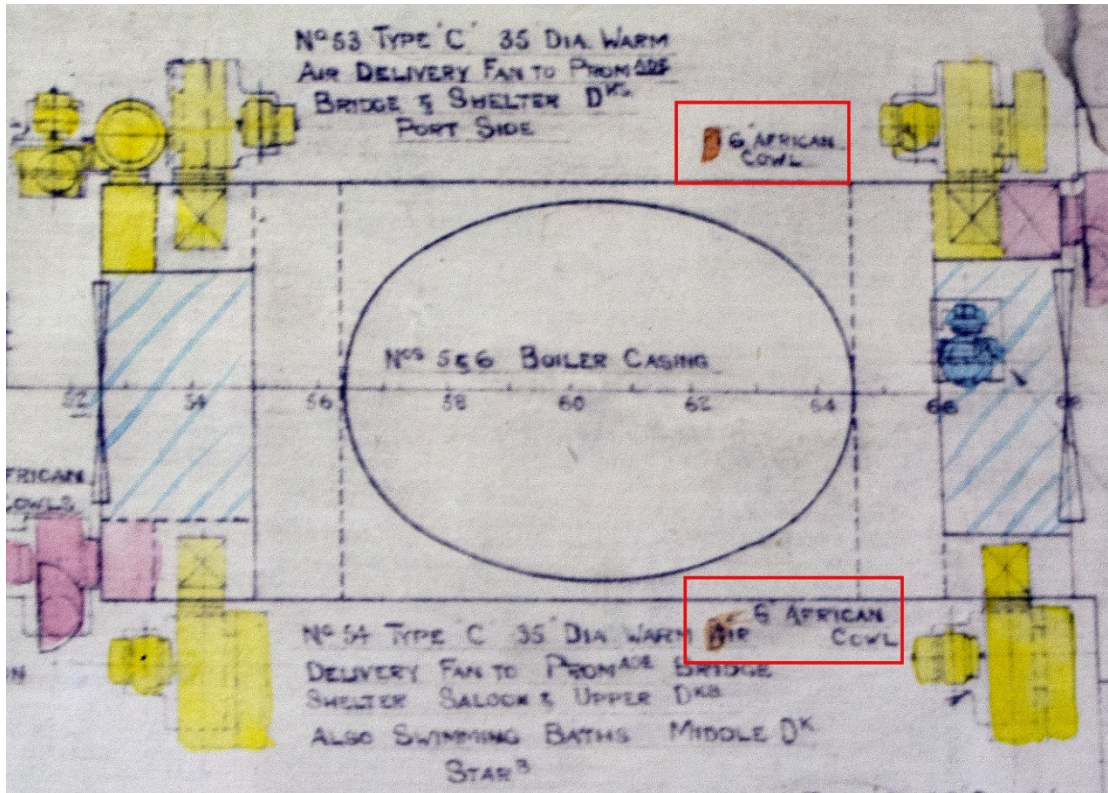 Nº 53 TYPE 'C' 35 DIA. WARM
AIR DELIVERY FAN TO PROMADE
BRIDGE & SHELTER DKS
PORT SIDE
6" AFRICAN
COWL
NOS 5 & 6 BOILER CASING
52 54 56 58 60 62 64 66 68
FRICAN
OWLS
6" AFRICAN
COWL
Nº 54 TYPE C 35" DIA. WARM AIR
DELIVERY FAN TO PROMADE BRIDGE
SHELTER SALOON & UPPER DKS
ALSO SWIMMING BATHS MIDDLE DK
STARB